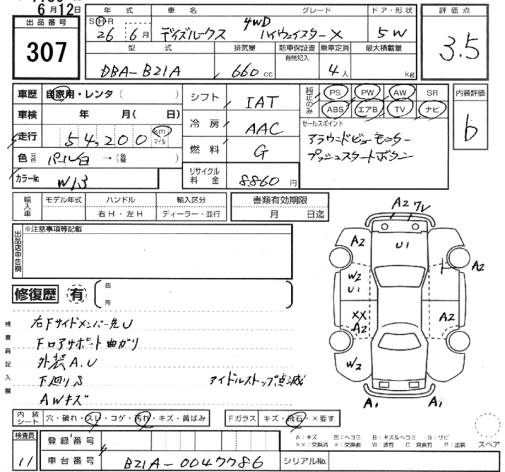 6月12日
出品番号
307
年式 車名 グレード ドア・形状
S H R
26年6月 デイズルークス 4WD ハイウェイスターX 5W
型式 排気量 駐車保証書 有無記入 乗車定員 最大積載量
DBA-B21A 660cc 4人 kg
評価点
3.5
車歴 自家用・レンタ( )
車検 年 月(日)
走行 54,200 km マイル
色 パール白 → ( )
カラーNo W13
シフト IAT
冷房 AAC
燃料 G
リサイクル料金 8860円
純正のみ PS PW AW SR
ABS エアB TV ナビ
セールスポイント
アラウンドビューモニター
プッシュスタートボタン
内装評価
b
輸入車 モデル年式 ハンドル 輸入区分 書類有効期限
右H・左H ディーラー・並行 月 日迄
出品店申告欄 ※注意事項等記載
修復歴 有 箇所
検査員記入欄
右Fサイドメンバー先U
Fロアサポート曲がり
外装A.U
下廻りS アイドルストップ点滅
AWキズ
A2 7V
A2 U1 A2
W2
U1
XX
A2 A2
W2
A1 A1
内装シート 穴・破れ・スレ・コゲ・汚れ・キズ・黄ばみ Fガラス キズ・飛石・×要す
A:キズ U:ヘコミ B:キズ&ヘコミ S:サビ
XX:交換済 X:交換要 W:波有 C:腐食有 P:塗装
スペア
検査員 11
登録番号
車台番号 B21A-0047786 シリアルNo.